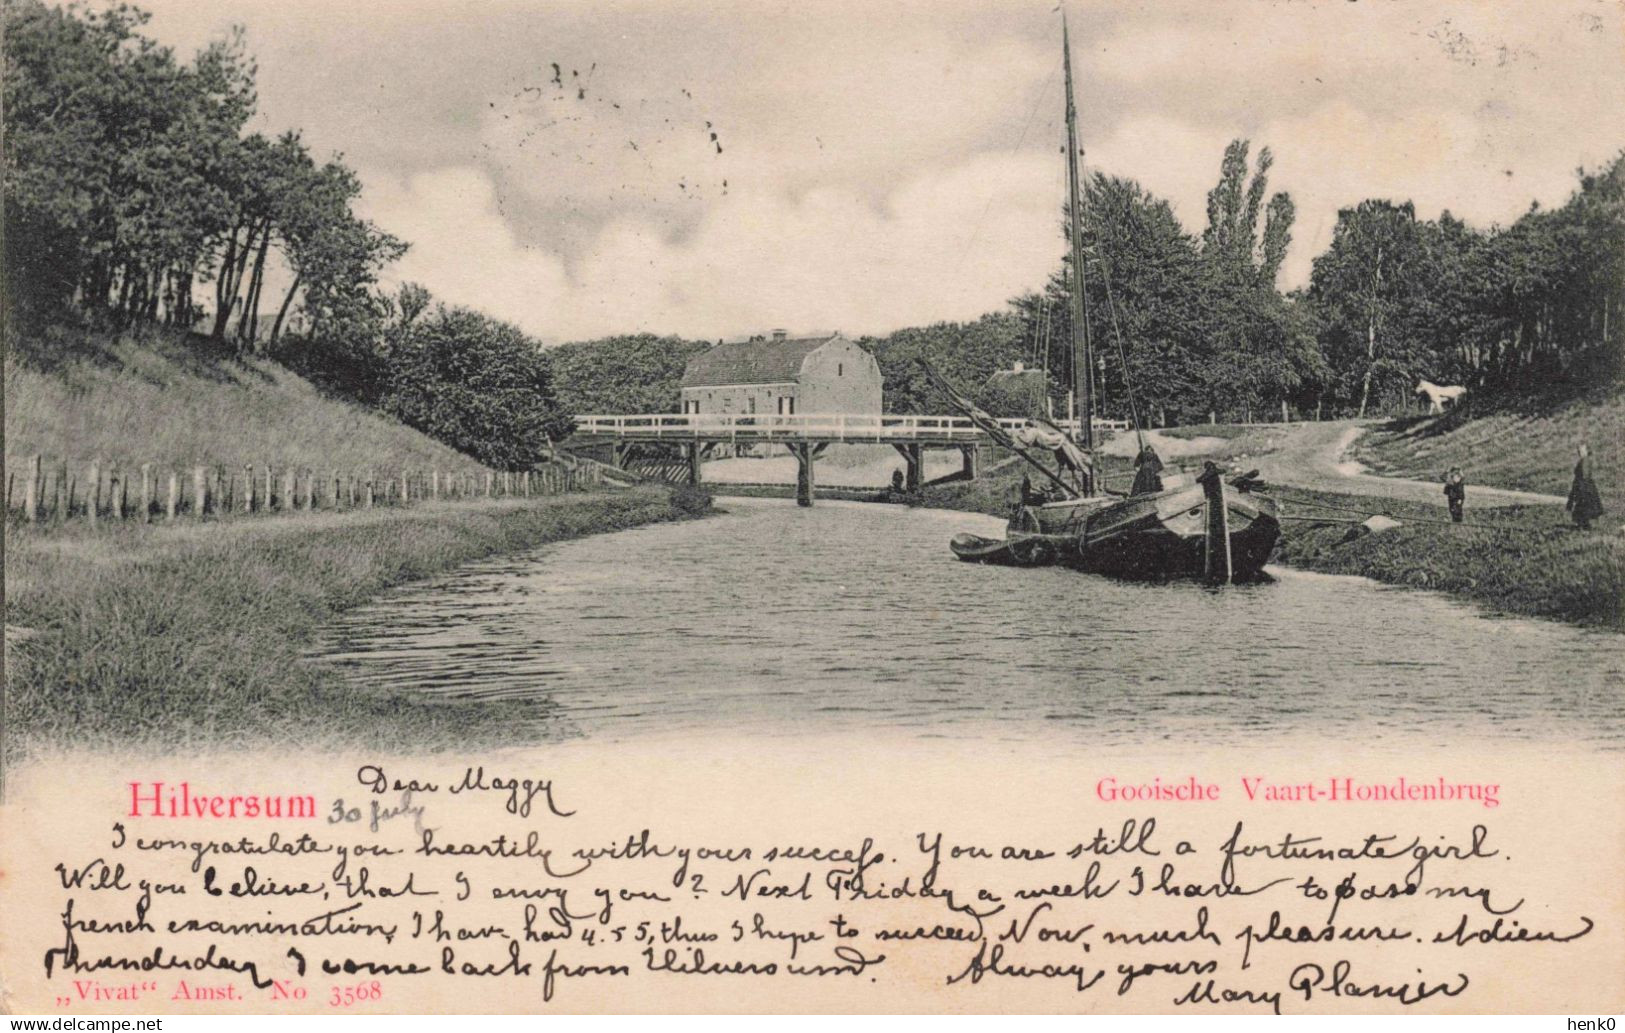 Dear Maggy
Hilversum
30 July
Gooische Vaart-Hondenbrug
I congratulate you heartily with your success. You are still a fortunate girl.
Will you believe, that I envy you? Next Friday a week I have to pass my
french examination, I have had 4.55, thus I hope to succeed, Now, much pleasure. Adieu
Thunduday I come back from Hilversum. Alway yours
Mary
„Vivat“ Amst. No 3568
henk0